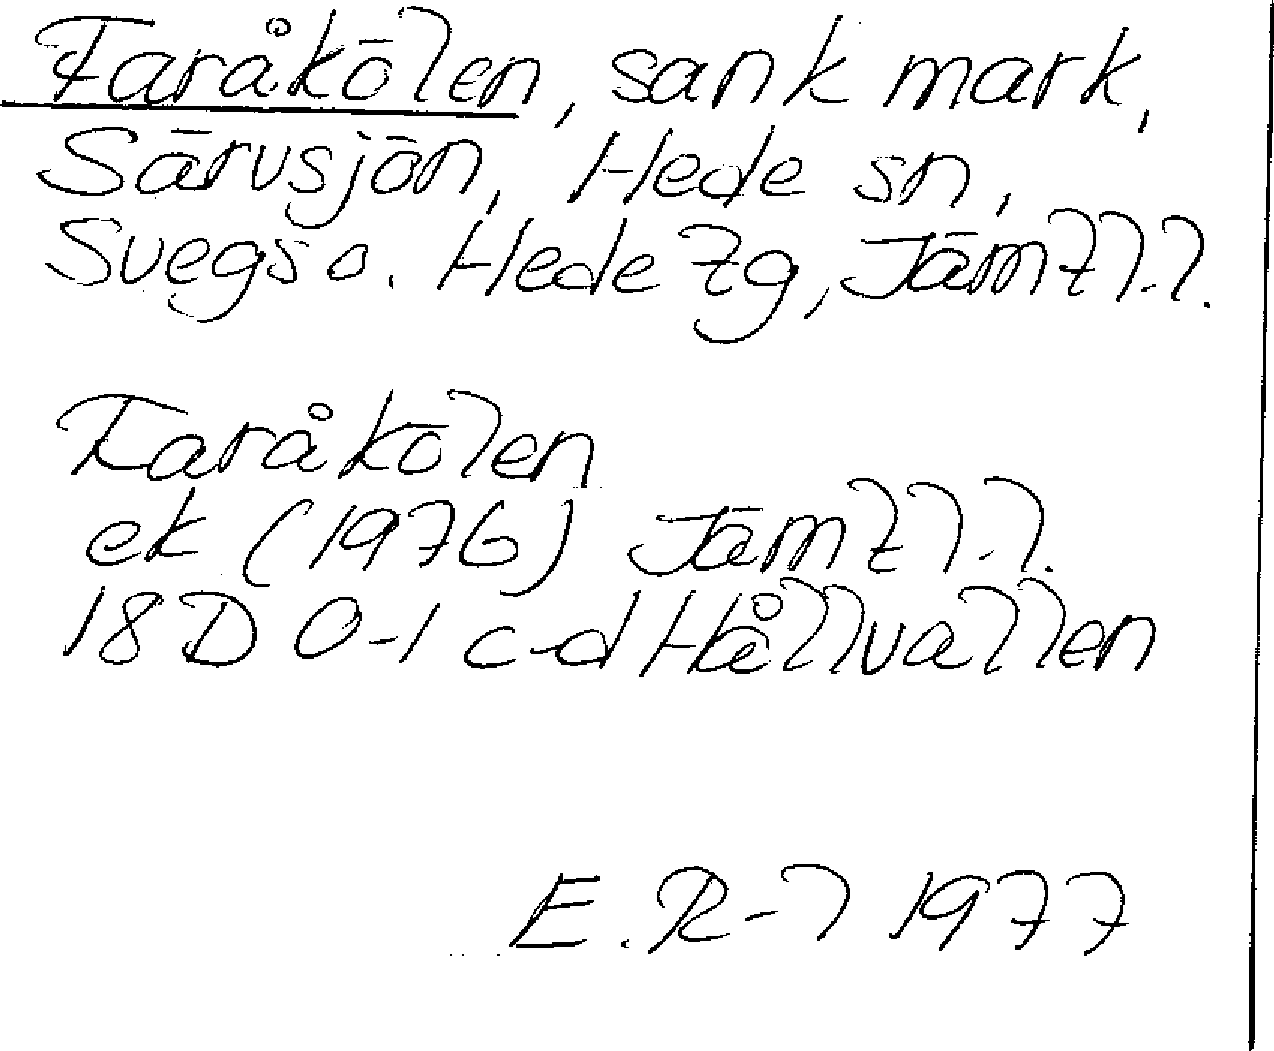 Faråkölen, sank mark,
Särvsjön, Hede sn,
Svegs o. Hede tg, Jämtl.l.
Faråkölen
ek (1976) Jämtl.l.
18D 0-1 c-d Hållvallen
E. R-l 1977